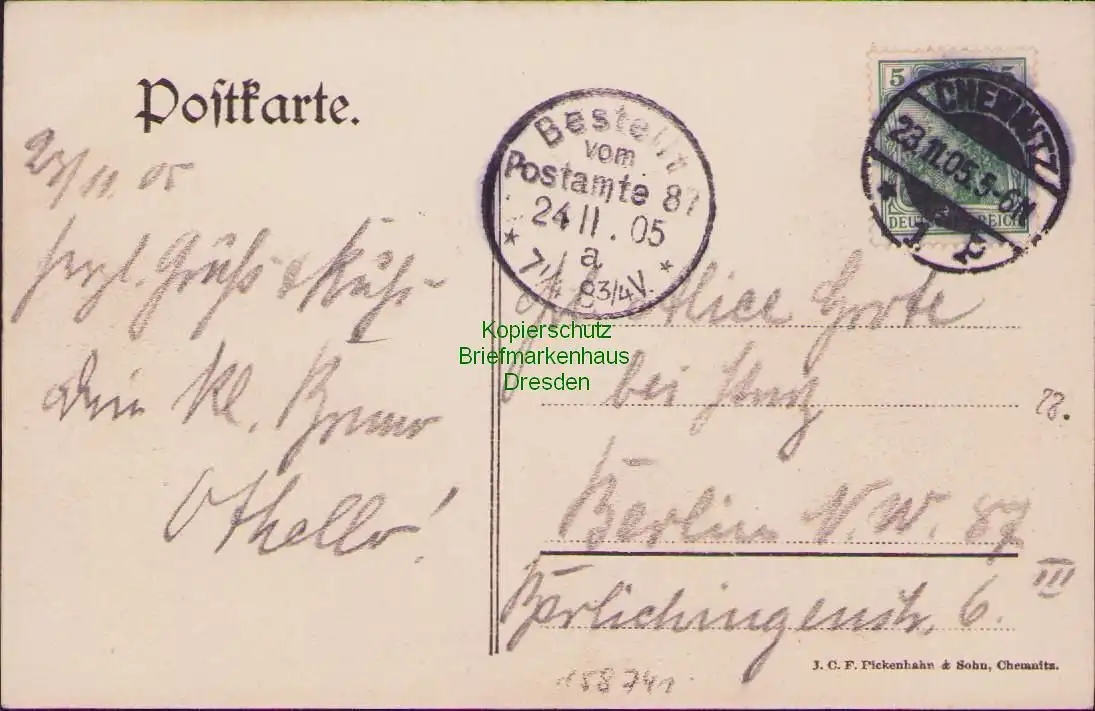 Postkarte.
23/11 05
herzl. Grüße & Küße
Dein kl. Bruno
Othello!
Bestellt
vom
Postamte 87
24 11. 05
a
7 1/4 83/4V.
CHEMNITZ
23.11.05. 5-6N
* 1 *
5 5
DEUTSCHES REICH
Kopierschutz
Briefmarkenhaus
Dresden
Alice Grote
bei
Berlin N.W. 87
Berlichingenstr. 6. III
J. C. F. Pickenhahn & Sohn, Chemnitz.
158741